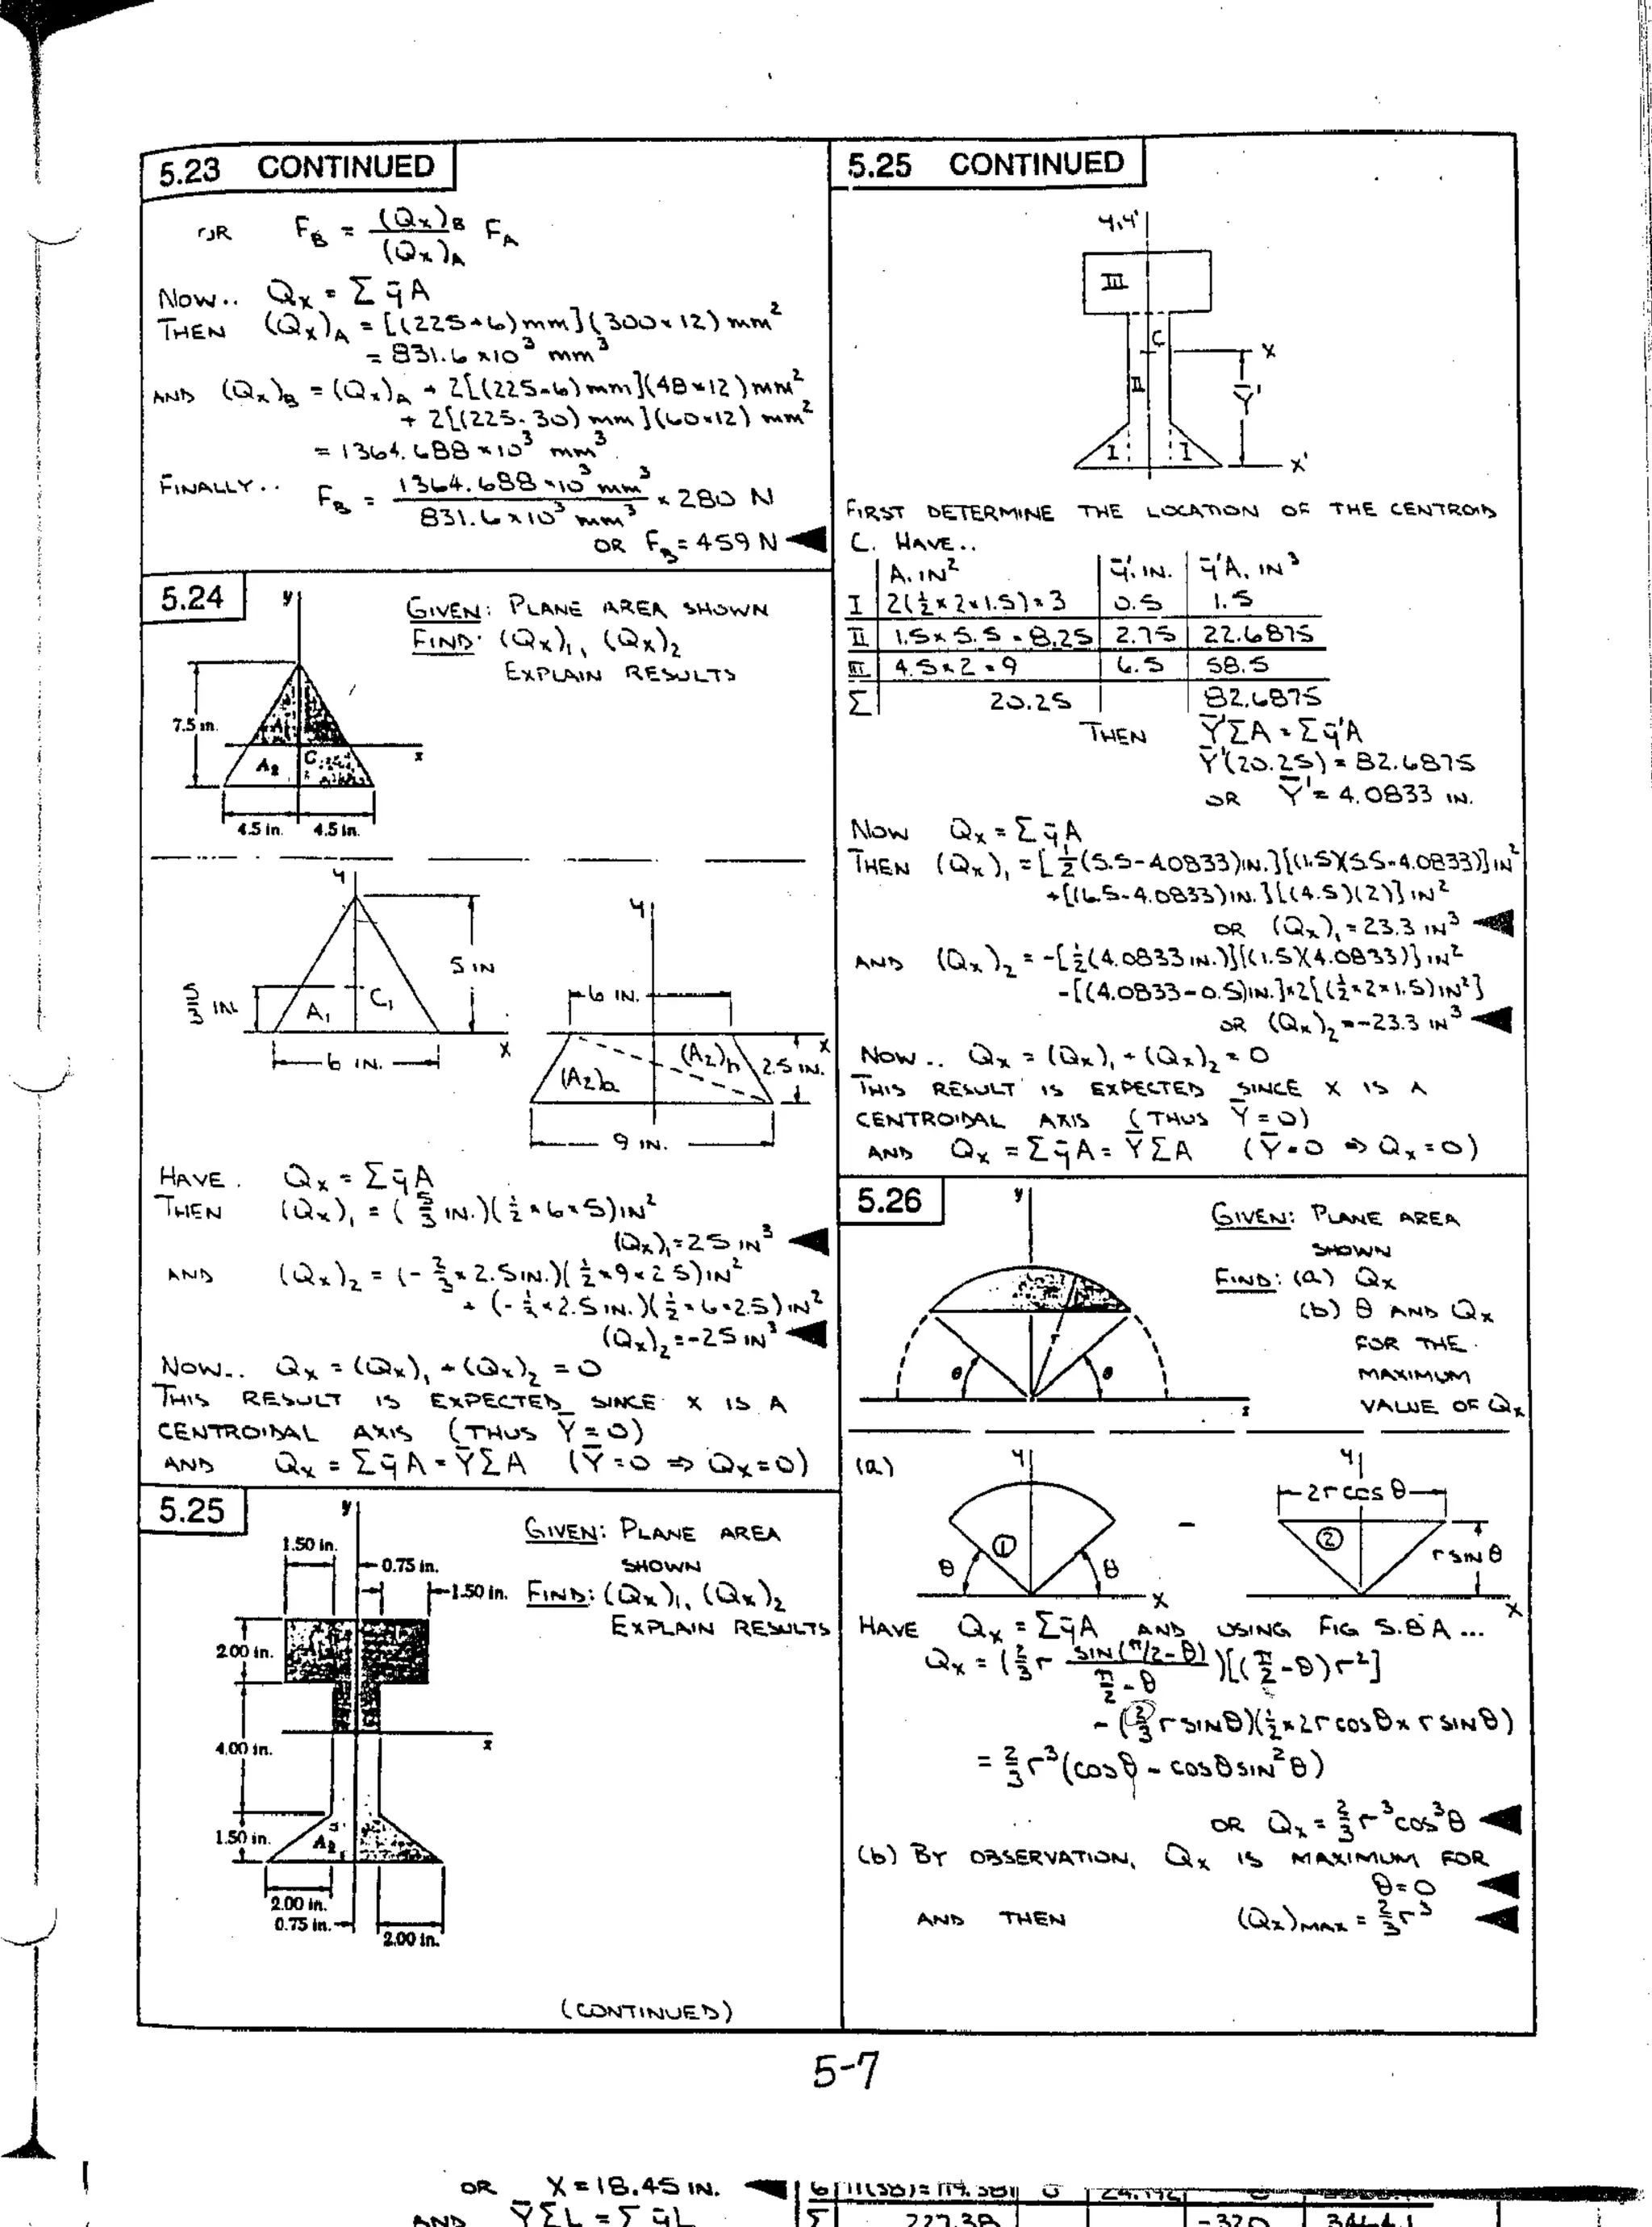 5.23 CONTINUED
OR F_B = (Q_x)_B / (Q_x)_A F_A
NOW.. Q_x = Σ ȳA
THEN (Q_x)_A = [(225+6)mm](300×12) mm²
= 831.6 ×10³ mm³
AND (Q_x)_B = (Q_x)_A + 2[(225-6)mm](48×12)mm²
+ 2[(225-30) mm](60×12) mm²
= 1364.688 ×10³ mm³
FINALLY.. F_B = 1364.688 ×10³ mm³ / 831.6×10³ mm³ × 280 N
OR F_B = 459 N
5.24
GIVEN: PLANE AREA SHOWN
FIND: (Q_x)₁, (Q_x)₂
EXPLAIN RESULTS
y
7.5 in.
A₁
A₂
C
x
4.5 in. 4.5 in.
y
5 IN
5/3 IN.
A₁
C₁
x
6 IN.
y
6 IN.
x
(A₂)a
(A₂)b
2.5 IN.
9 IN.
HAVE. Q_x = Σ ȳA
THEN (Q_x)₁ = (5/3 IN.)(1/2×6×5)IN²
(Q_x)₁ = 25 IN³
AND (Q_x)₂ = (-2/3×2.5IN.)(1/2×9×2.5)IN²
+ (-1/3×2.5 IN.)(1/2×6×2.5)IN²
(Q_x)₂ = -25 IN³
NOW.. Q_x = (Q_x)₁ + (Q_x)₂ = 0
THIS RESULT IS EXPECTED SINCE x IS A
CENTROIDAL AXIS (THUS Ȳ = 0)
AND Q_x = ΣȳA = ȲΣA (Ȳ=0 ⇒ Q_x=0)
5.25
GIVEN: PLANE AREA
SHOWN
FIND: (Q_x)₁, (Q_x)₂
EXPLAIN RESULTS
y
1.50 in.
0.75 in.
1.50 in.
2.00 in.
x
4.00 in.
1.50 in.
A₂
2.00 in.
0.75 in.
2.00 in.
(CONTINUED)
5.25 CONTINUED
y,y'
III
C
x
II
Ȳ'
I I
x'
FIRST DETERMINE THE LOCATION OF THE CENTROID
C. HAVE..
A, IN² ȳ', IN. ȳ'A, IN³
I 2(1/2×2×1.5)=3 0.5 1.5
II 1.5×5.5=8.25 2.75 22.6875
III 4.5×2=9 6.5 58.5
Σ 20.25 82.6875
THEN Ȳ'ΣA = Σȳ'A
Ȳ'(20.25) = 82.6875
OR Ȳ' = 4.0833 IN.
NOW Q_x = ΣȳA
THEN (Q_x)₁ = [1/2(5.5-4.0833)IN.][(1.5)(5.5-4.0833)]IN²
+[(6.5-4.0833)IN.][(4.5)(2)]IN²
OR (Q_x)₁ = 23.3 IN³
AND (Q_x)₂ = -[1/2(4.0833 IN.)][(1.5)(4.0833)]IN²
-[(4.0833-0.5)IN.]×2[(1/2×2×1.5)IN²]
OR (Q_x)₂ = -23.3 IN³
NOW.. Q_x = (Q_x)₁ + (Q_x)₂ = 0
THIS RESULT IS EXPECTED SINCE x IS A
CENTROIDAL AXIS (THUS Ȳ = 0)
AND Q_x = ΣȳA = ȲΣA (Ȳ=0 ⇒ Q_x=0)
5.26
GIVEN: PLANE AREA
SHOWN
FIND: (a) Q_x
(b) θ AND Q_x
FOR THE
MAXIMUM
VALUE OF Q_x
y
r
θ θ
x
(a)
y
①
θ θ
x
-
y
2r cos θ
②
r SIN θ
x
HAVE Q_x = ΣȳA AND USING FIG 5.8A...
Q_x = (2/3 r SIN(π/2-θ) / (π/2-θ))[(π/2-θ)r²]
- (2/3 r SINθ)(1/2×2r cosθ × r SINθ)
= 2/3 r³(cosθ - cosθ SIN²θ)
OR Q_x = 2/3 r³ cos³θ
(b) BY OBSERVATION, Q_x IS MAXIMUM FOR
θ=0
AND THEN (Q_x)MAX = 2/3 r³
5-7
OR X = 18.45 IN.
AND ȲΣL = ΣȳL